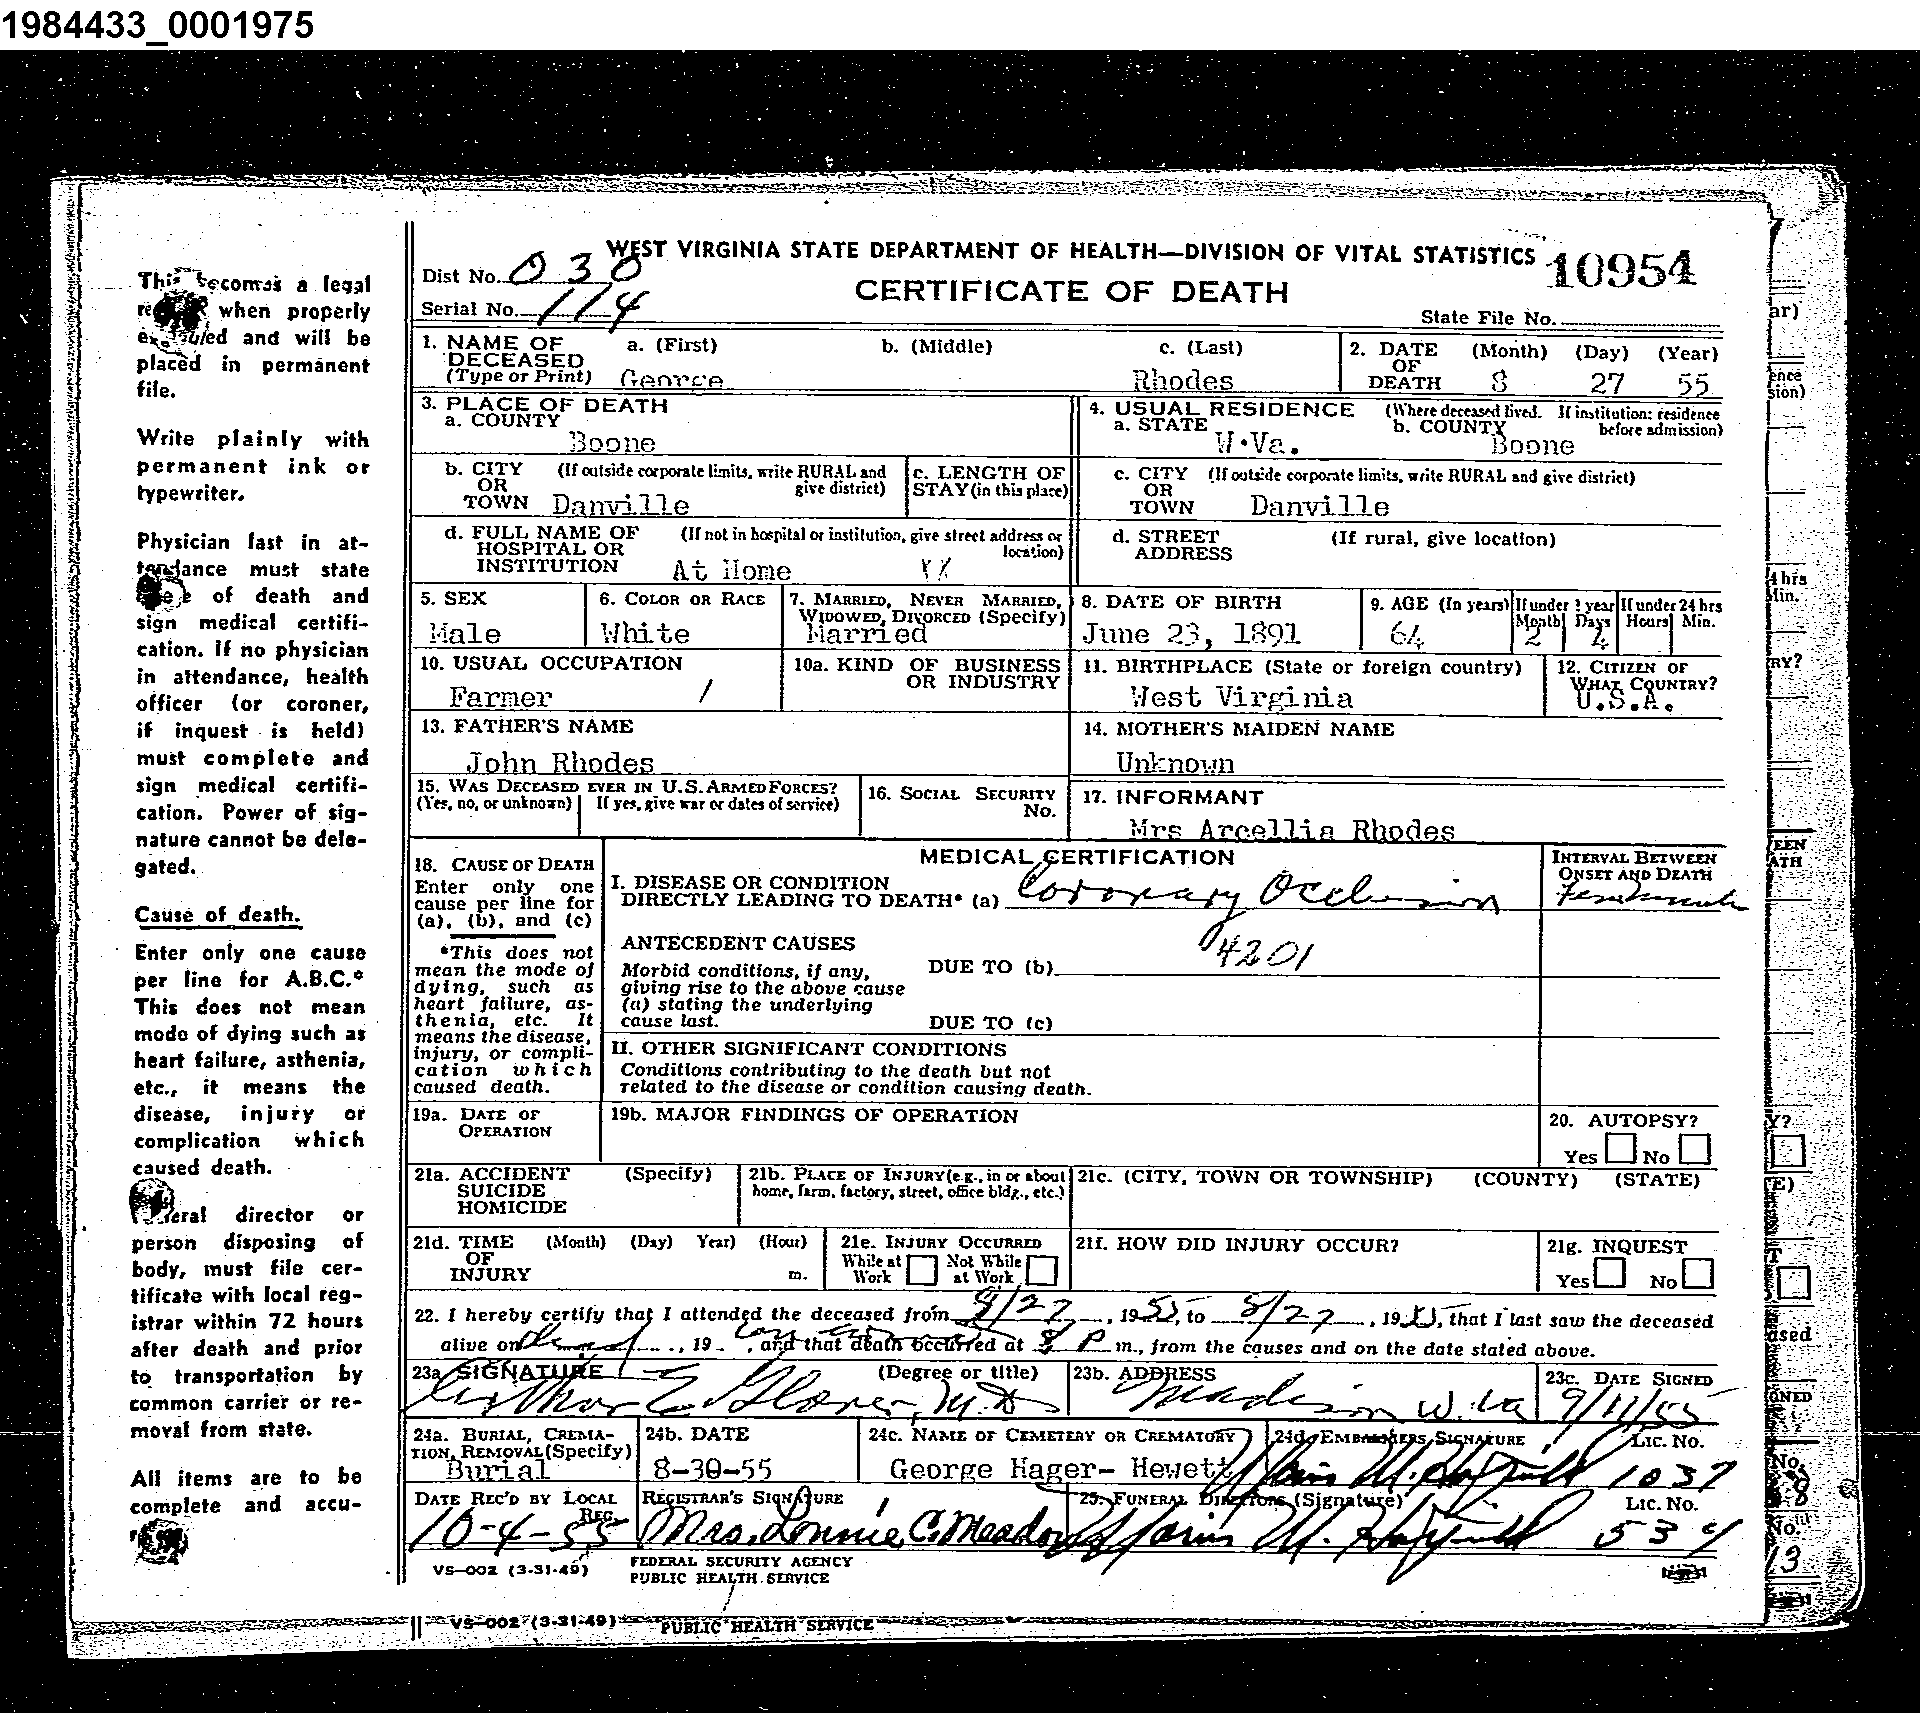 1984433_0001975
WEST VIRGINIA STATE DEPARTMENT OF HEALTH—DIVISION OF VITAL STATISTICS
10954
Dist No. 030
CERTIFICATE OF DEATH
Serial No. 114
State File No.
This becomes a legal
when properly
and will be
placed in permanent
file.
Write plainly with
permanent ink or
typewriter.
Physician last in at-
tendance must state
of death and
sign medical certifi-
cation. If no physician
in attendance, health
officer (or coroner,
if inquest is held)
must complete and
sign medical certifi-
cation. Power of sig-
nature cannot be dele-
gated.
Cause of death.
Enter only one cause
per line for A.B.C.*
This does not mean
mode of dying such as
heart failure, asthenia,
etc., it means the
disease, injury or
complication which
caused death.
director or
person disposing of
body, must file cer-
tificate with local reg-
istrar within 72 hours
after death and prior
to transportation by
common carrier or re-
moval from state.
All items are to be
complete and accu-
1. NAME OF DECEASED (Type or Print) a. (First) b. (Middle) c. (Last)
George Rhodes
2. DATE OF DEATH (Month) (Day) (Year)
8 27 55
3. PLACE OF DEATH
a. COUNTY
Boone
4. USUAL RESIDENCE (Where deceased lived. If institution: residence before admission)
a. STATE b. COUNTY
W.Va. Boone
b. CITY OR TOWN (If outside corporate limits, write RURAL and give district)
Danville
c. LENGTH OF STAY (in this place)
c. CITY OR TOWN (If outside corporate limits, write RURAL and give district)
Danville
d. FULL NAME OF HOSPITAL OR INSTITUTION (If not in hospital or institution, give street address or location)
At Home
d. STREET ADDRESS (If rural, give location)
5. SEX
Male
6. COLOR OR RACE
White
7. MARRIED, NEVER MARRIED, WIDOWED, DIVORCED (Specify)
Married
8. DATE OF BIRTH
June 23, 1891
9. AGE (In years)
64
If under 1 year Month Days
2 4
If under 24 hrs Hours Min.
10. USUAL OCCUPATION
Farmer /
10a. KIND OF BUSINESS OR INDUSTRY
11. BIRTHPLACE (State or foreign country)
West Virginia
12. CITIZEN OF WHAT COUNTRY?
U.S.A.
13. FATHER'S NAME
John Rhodes
14. MOTHER'S MAIDEN NAME
Unknown
15. WAS DECEASED EVER IN U.S. ARMED FORCES?
(Yes, no, or unknown) If yes, give war or dates of service)
16. SOCIAL SECURITY No.
17. INFORMANT
Mrs Arcellia Rhodes
18. CAUSE OF DEATH
Enter only one
cause per line for
(a), (b), and (c)
*This does not
mean the mode of
dying, such as
heart failure, as-
thenia, etc. It
means the disease,
injury, or compli-
cation which
caused death.
MEDICAL CERTIFICATION
INTERVAL BETWEEN ONSET AND DEATH
I. DISEASE OR CONDITION
DIRECTLY LEADING TO DEATH* (a) Coronary Occlusion
4201
ANTECEDENT CAUSES
Morbid conditions, if any,
giving rise to the above cause
(a) stating the underlying
cause last.
DUE TO (b)
DUE TO (c)
II. OTHER SIGNIFICANT CONDITIONS
Conditions contributing to the death but not
related to the disease or condition causing death.
19a. DATE OF OPERATION
19b. MAJOR FINDINGS OF OPERATION
20. AUTOPSY?
Yes No
21a. ACCIDENT SUICIDE HOMICIDE (Specify)
21b. PLACE OF INJURY (e.g., in or about home, farm, factory, street, office bldg., etc.)
21c. (CITY, TOWN OR TOWNSHIP) (COUNTY) (STATE)
21d. TIME OF INJURY (Month) (Day) Year) (Hour) m.
21e. INJURY OCCURRED
While at Work Not While at Work
21f. HOW DID INJURY OCCUR?
21g. INQUEST
Yes No
22. I hereby certify that I attended the deceased from 8/27, 1955, to 8/27, 1955, that I last saw the deceased
alive on dead, 19 , and that death occurred at 8 P m., from the causes and on the date stated above.
23a. SIGNATURE (Degree or title)
Arthur E Glover, M.D
23b. ADDRESS
Madison W. Va
23c. DATE SIGNED
9/11/55
24a. BURIAL, CREMATION, REMOVAL (Specify)
Burial
24b. DATE
8-30-55
24c. NAME OF CEMETERY OR CREMATORY
George Hager- Hewett
24d. EMBALMERS SIGNATURE LIC. NO.
1037
DATE REC'D BY LOCAL REG.
10-4-55
REGISTRAR'S SIGNATURE
Mrs. Lonnie C. Meadows
25. FUNERAL DIRECTORS (Signature) LIC. NO.
534
VS—002 (3-31-49)
FEDERAL SECURITY AGENCY
PUBLIC HEALTH SERVICE
VS—002 (3-31-49)
PUBLIC HEALTH SERVICE